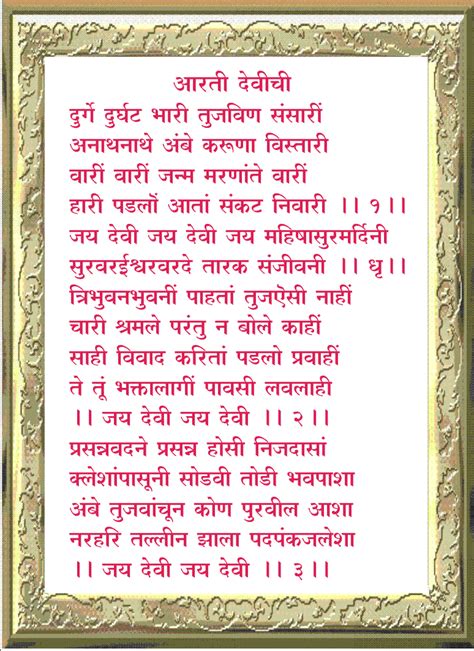 आरती देवीची
दुर्गे दुर्घट भारी तुजविण संसारीं
अनाथनाथे अंबे करूणा विस्तारी
वारीं वारीं जन्म मरणांते वारीं
हारी पडलॊं आतां संकट निवारी ।। १ ।।
जय देवी जय देवी जय महिषासुरमर्दिनी
सुरवरईश्वरवरदे तारक संजीवनी ।। धृ ।।
त्रिभुवनभुवनीं पाहतां तुजऎसी नाहीं
चारी श्रमले परंतु न बोले काहीं
साही विवाद करितां पडलो प्रवाहीं
ते तूं भक्तालागीं पावसी लवलाही
।। जय देवी जय देवी ।। २ ।।
प्रसन्नवदने प्रसन्न होसी निजदासां
क्लेशांपासूनी सोडवी तोडी भवपाशा
अंबे तुजवांचून कोण पुरवील आशा
नरहरि तल्लीन झाला पदपंकजलेशा
।। जय देवी जय देवी ।। ३ ।।